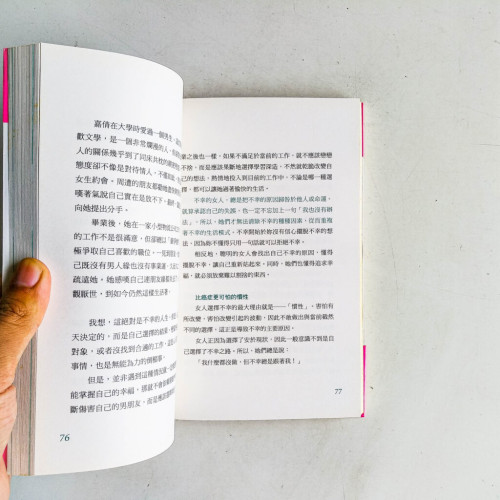 嘉倩在大學時愛過一個男生，
歡文學，是一個非常爛漫的人，
人的關係幾乎到了同床共枕的
態度卻不像是對待情人，不僅
女生約會。周遭的朋友都勸她
嘆著氣說自己實在是放不下，
向她提出分手。
畢業後，她在一家小型物流公司
的工作不是很滿意，但卻總以
極爭取自己喜歡的職位，一拒
己既沒有男人緣也沒有事業運，
疏遠她。她感嘆自己運
觀厭世，到如今仍然這樣生活著。
我想，這絕對是不幸的人生，
天決定的，而是自己選擇的結果，
對象，或者沒找到合適的工作，
事情，也是無能為力的
但是，並非遇到這種情況
能掌握自己的幸福，那就不會
斷傷害自己的男朋友，而是應該
76
業之後也一樣，如果不滿足於當前的工作，就不應該戀戀
不捨，而是應該果斷地選擇學習深造，不然就乾脆改變自
己的想法，熱情地投入到目前的工作中。不論是哪一種選
擇，都可以讓她過著愉快的生活。
不幸的女人，總是把不幸的原因歸咎於他人或命運，
就算承認自己的失誤，也一定不忘加上一句「我也沒有辦
法」。所以，她們才無法消除不幸的種種因素，從而重複
著不幸的生活模式。不幸開始於妳沒有信心擺脫不幸的想
法，因為妳不懂得只用一句話就可以拒絕不幸。
相反地，聰明的女人會找出自己不幸的原因，懂得
擺脫不幸，讓自己重新站起來。同時，她們也懂得追求幸
福，就必須放棄難以割捨的東西。
比癌症更可怕的慣性
女人選擇不幸的最大理由就是──「慣性」，害怕有
所改變、害怕改變引起的波動，因此不敢做出與當前截然
不同的選擇，這正是導致不幸的主要原因。
女人正因為選擇了安於現狀，因此一般意識不到是自
己選擇了不幸之路。所以，她們總是說：
「我什麼都沒做，但不幸總是跟著我！」
77